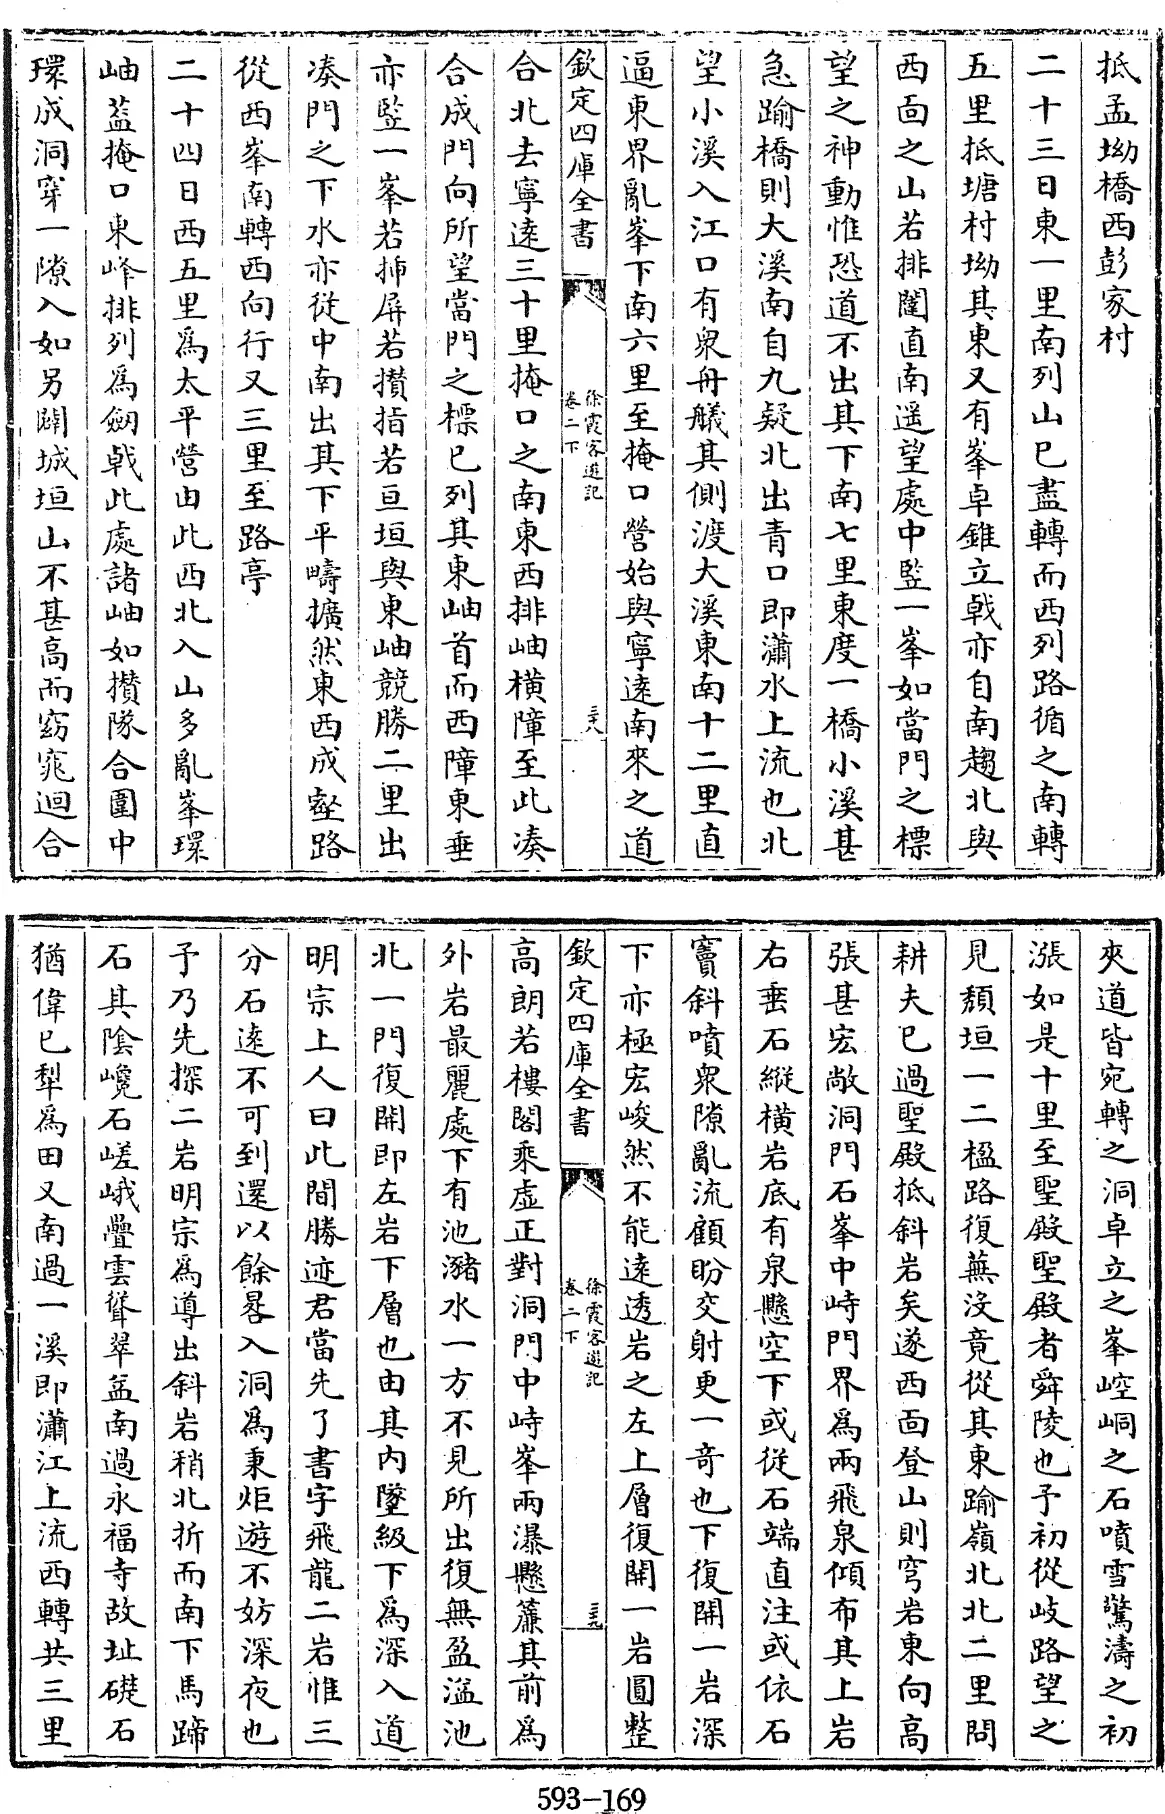 抵孟坳橋西彭家村
二十三日東一里南列山已盡轉而西列路循之南轉
五里抵塘村坳其東又有峯卓錐立戟亦自南趨北與
西面之山若排闥直南遥望處中監一峯如當門之標
望之神動惟恐道不出其下南七里東度一橋小溪甚
急踰橋則大溪南自九疑北出青口即瀟水上流也北
望小溪入江口有衆舟艤其側渡大溪東南十二里直
逼東界亂峯下南六里至掩口營始與寧遠南來之道
欽定四庫全書
徐霞客遊記
卷二下
三十八
合北去寧遠三十里掩口之南東西排岫横障至此湊
合成門向所望當門之標已列其東岫首而西障東垂
亦監一峯若揷屏若攅指若亘垣與東岫競勝二里出
凑門之下水亦從中南出其下平疇擴然東西成壑路
從西峯南轉西向行又三里至路亭
二十四日西五里爲太平營由此西北入山多亂峯環
岫葢掩口東峰排列爲劒戟此處諸岫如攅隊合圍中
環成洞穿一隙入如另闢城垣山不甚高而窈窕迴合
夾道皆宛轉之洞卓立之峯崆峒之石噴雪驚濤之初
漲如是十里至聖殿聖殿者舜陵也予初從岐路望之
見頽垣一二楹路復蕪沒竟從其東踰嶺北北二里問
耕夫已過聖殿抵斜岩矣遂西面登山則穹岩東向高
張甚宏敞洞門石峯中峙門界爲兩飛泉傾布其上岩
右垂石縱横岩底有泉懸空下或從石端直注或依石
竇斜噴衆隙亂流顧盼交射更一奇也下復開一岩深
下亦極宏峻然不能遠透岩之左上層復開一岩圓整
欽定四庫全書
徐霞客遊記
卷二下
三十九
高朗若樓閣乘虛正對洞門中峙峯兩瀑懸簾其前爲
外岩最麗處下有池瀦水一方不見所出復無盈溢池
北一門復開即左岩下層也由其内墜級下爲深入道
明宗上人曰此間勝迹君當先了書字飛龍二岩惟三
分石遠不可到還以餘晷入洞爲秉炬遊不妨深夜也
予乃先探二岩明宗爲導出斜岩稍北折而南下馬蹄
石其陰巉石嵯峨疊雲聳翠盆南過永福寺故址礎石
猶偉已犁爲田又南過一溪即瀟江上流西轉共三里
593-169